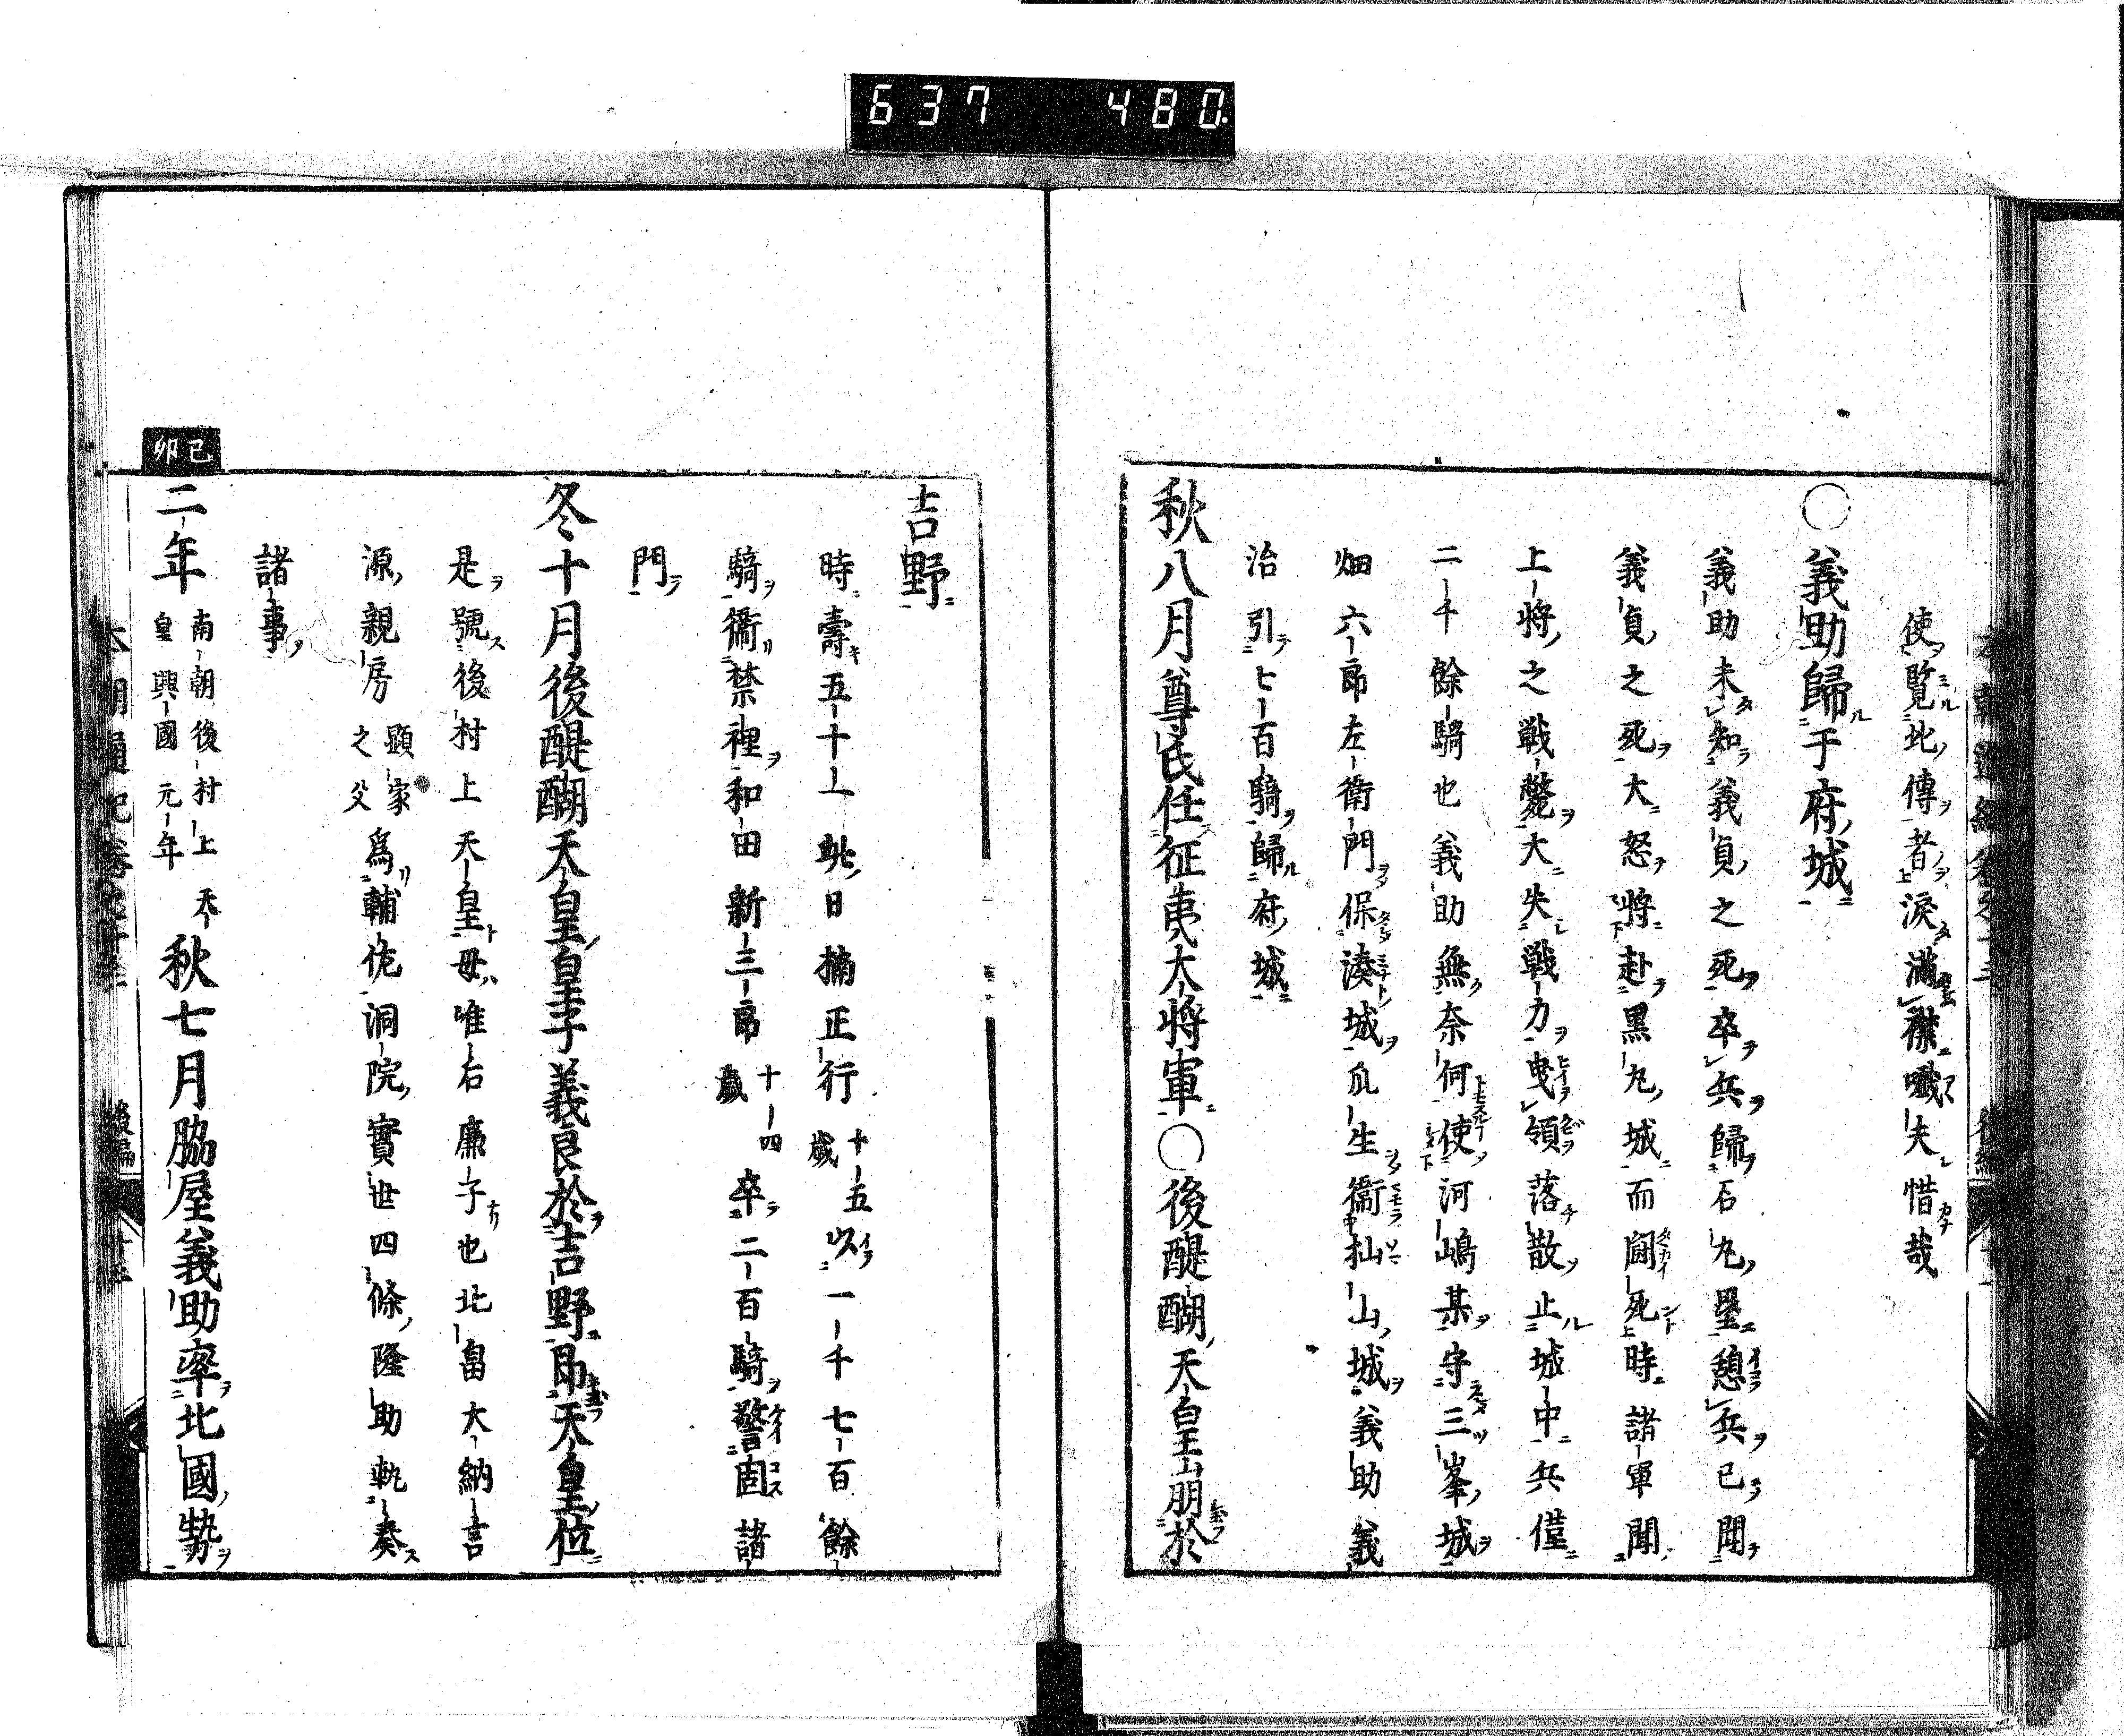 637 480
使覽此傳者淚滿襟噫夫惜哉
○義助歸于府城
義助未知義貞之死卒兵歸石丸壘憩兵已聞
義貞之死大怒將赴黒丸城而鬪死時諸軍聞
上將之戰斃大失戰力曳領落散止城中兵僅
二千餘騎也義助無奈何使河嶋某守三峯城
畑六郎左衛門保湊城瓜生衞杣山城義助義
治引七百騎歸府城
秋八月尊氏任征夷大將軍○後醍醐天皇崩於
吉野
時壽五十一此日楠正行十五歳以一千七百餘
騎衞禁裡和田新三郎十四歳卒二百騎警固諸
門
冬十月後醍醐天皇皇子義良於吉野即天皇位
是號後村上天皇母准右廉子也北畠大納言
源親房顯家之父爲輔佐洞院實世四條隆助執奏
諸事
己卯
二年南朝後村上天皇興國元年秋七月脇屋義助率北國勢